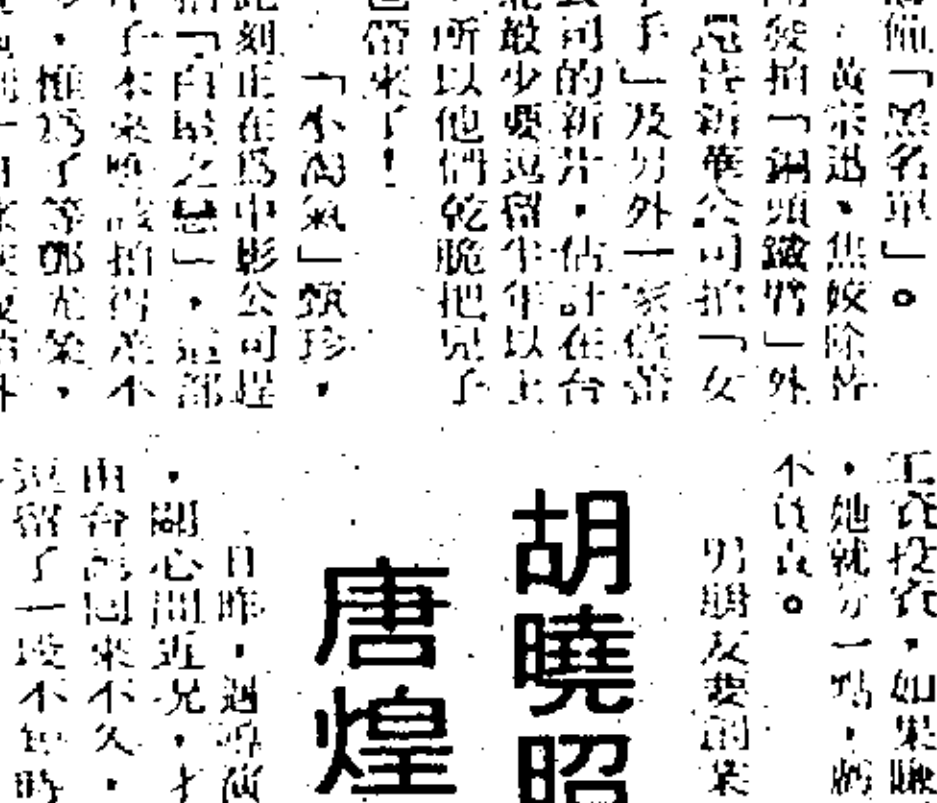 備「黑名單」。
黃宗迅、焦姣除替
後拍「鋼頭鐵臂」外
是替新華公司拍「女
手」及另外一家
公司的新片，估計在台
北最少要逗留半年以上
所以他們乾脆把兒子
也帶來了！
「小淘氣」甄珍，
此刻正在爲中影公司趕
拍「白屋之戀」，這部
片子本來應該拍得差不
，惟爲了等鄧光榮，
工資投資，如果賺
，她就分一點，虧
不負責。
男朋友要創業
胡曉昭
唐煌
日昨，遇導演
，關心問近兄，才
由台灣回來不久，
逗留了一段不短時